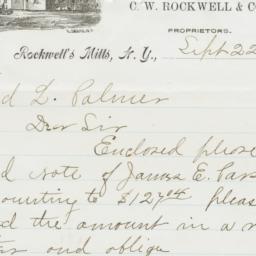 C. W. ROCKWELL & CO
PROPRIETORS.
Rockwell's Mills, N. Y., Sept 22
d D. Palmer
Dear Sir
Enclosed please
d note of James E. Pars
ounting to $12 pleas
d the amount in a n
and oblige